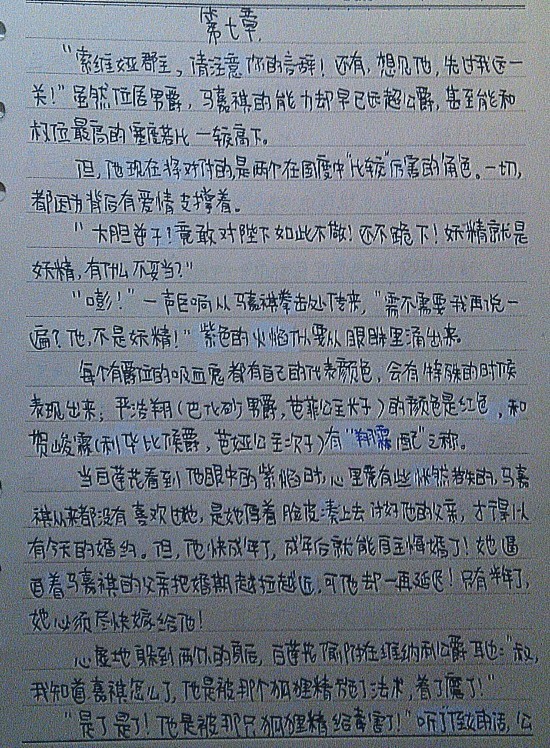 第七章
“索维娅郡主，请注意你的言辞！还有，想见他，先过我这一
关！”虽然位居男爵，马嘉祺的能力却早已远超公爵，甚至能和
权位最高的 比一较高下。
但，他现在将对付的是两个在国度中“比较”厉害的角色。一切，
都因为背后有爱情支撑着。
“大胆逆子！竟敢对陛下如此不敬！还不跪下！妖精就是
妖精，有什么不妥当？”
“嘭！”一声巨响从马嘉祺拳击处传来，“需不需要我再说一
遍？他，不是妖精！”紫色的火焰似要从眼眸里涌出来。
每个有爵位的吸血鬼都有自己的代表颜色，会有特殊的时候
表现出来；严浩翔（巴比伦男爵，芭菲公主长子）的颜色是红色，和
贺峻霖（利华比侯爵，芭娅公主次子）有“翔霖配”之称。
当白莲花看到他眼中的紫焰时，心里竟有些怅然若失的，马嘉
祺从来都没有喜欢过她，是她厚着脸皮凑上去讨好他的父亲，才得以
有今天的婚约。但，他快成年了，成年后就能自主悔婚了！她逼
着马嘉祺的父亲把婚期越拉越近，可他却一再延迟！只有半年了，
她必须尽快嫁给他！
心虚地躲到两个人的身后，白莲花俯附在维纳利公爵耳边：“叔，
我知道嘉祺怎么了，他是被那个狐狸精施了法术，着了魔了！”
“是了是了！他是被那只狐狸精给毒害了！”听了侄女的话，公